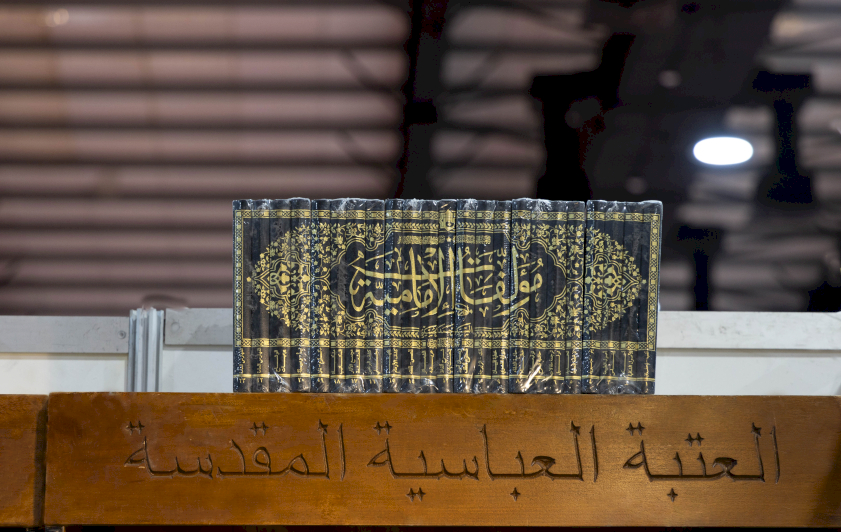 مؤلفات الإمامية
العتبة العباسية المقدسة